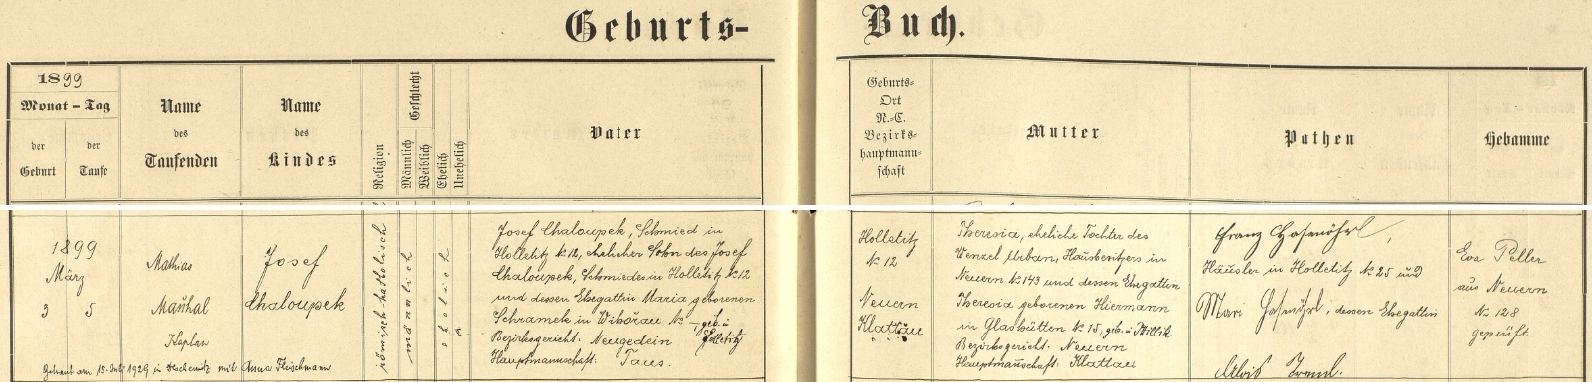 Geburts-
Buch.
1899
Monat - Tag
der
Geburt
der
Taufe
Name
des
Taufenden
Name
des
Kindes
Religion
Geschlecht
Männlich
Weiblich
Ehelich
Unehelich
Vater
Geburts-
Ort
N.-C.
Bezirks-
hauptmann-
schaft
Mutter
Pathen
Hebamme
1899
März
3 5
Mathias
Mařihal
Kaplan
Josef
Chaloupek
römisch-katholisch
männlich
ehelich
Josef Chaloupek, Schmied in
Holletitz № 12, ehelicher Sohn des Josef
Chaloupek, Schmiedes in Holletitz № 12
und dessen Ehegattin Maria geborenen
Schramek in Wihorau № — geb. in
Holletitz
Bezirksgericht: Neugedein
Hauptmannschaft: Taus.
Getraut am 15. Juli 1929 in mit Anna Fleischmann
Holletitz
№ 12
Neuern
Klattau
Theresia, eheliche Tochter des
Wenzel Urban, Hausbesitzers in
Neuern № 143 und dessen Ehegattin
Theresia geborenen Hiermann
in Glashütten № 15, geb. in Millik
Bezirksgericht: Neuern
Hauptmannschaft: Klattau
Franz Hasenöhrl,
Häusler in Holletitz № 25 und
Mari Hasenöhrl, dessen Ehegattin
Alois Treml.
Eva Peller
aus Neuern
№ 128
geprüft